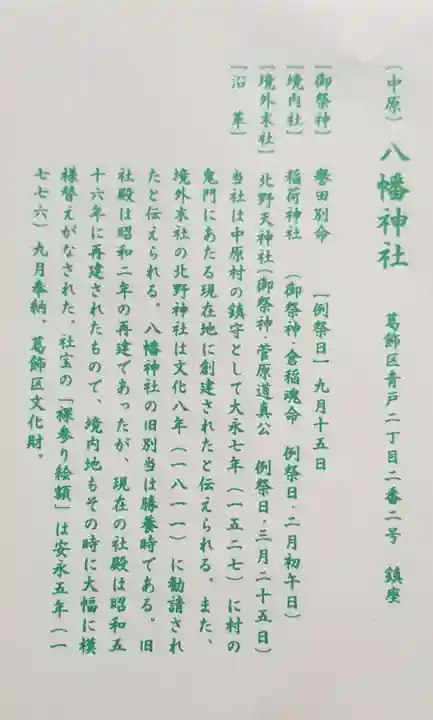 (中原) 八幡神社 葛飾区青戸二丁目二番二号 鎮座
[御祭神] 誉田別命 [例祭日] 九月十五日
[境内社] 稲荷神社 (御祭神·倉稲魂命 例祭日·二月初午日)
[境外末社] 北野天神社(御祭神·菅原道真公 例祭日·三月二十五日)
[沿 革] 当社は中原村の鎮守として大永七年(一五二七)に村の
鬼門にあたる現在地に創建されたと伝えられる。また、
境外末社の北野神社は文化八年(一八一一)に勧請され
たと伝えられる。八幡神社の旧別当は勝養時である。旧
社殿は昭和二年の再建であったが、現在の社殿は昭和五
十六年に再建されたもので、境内地もその時に大幅に模
様替えがなされた。社宝の「裸参り絵額」は安永五年(一
七七六)九月奉納、葛飾区文化財。